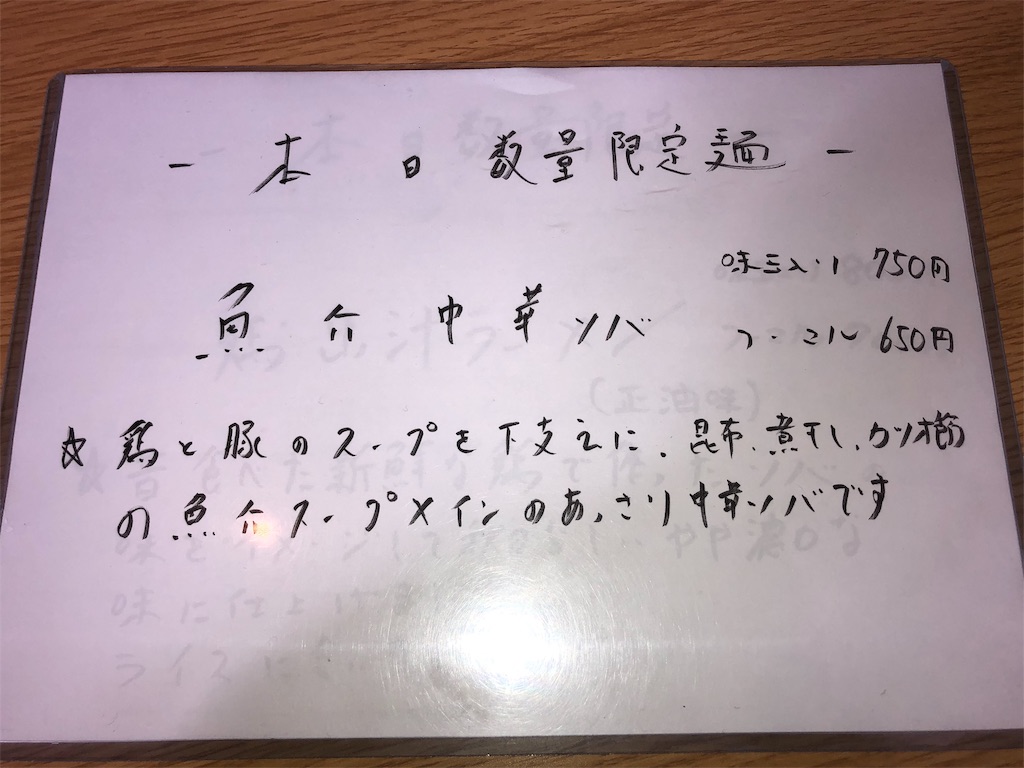 - 本日数量限定麺 -
味玉入り 750円
魚介中華ソバ
ノーマル 650円
☆ 鶏と豚のスープを下支えに、昆布、煮干し、カツオ節
の魚介スープメインのあっさり中華ソバです
(正油味)